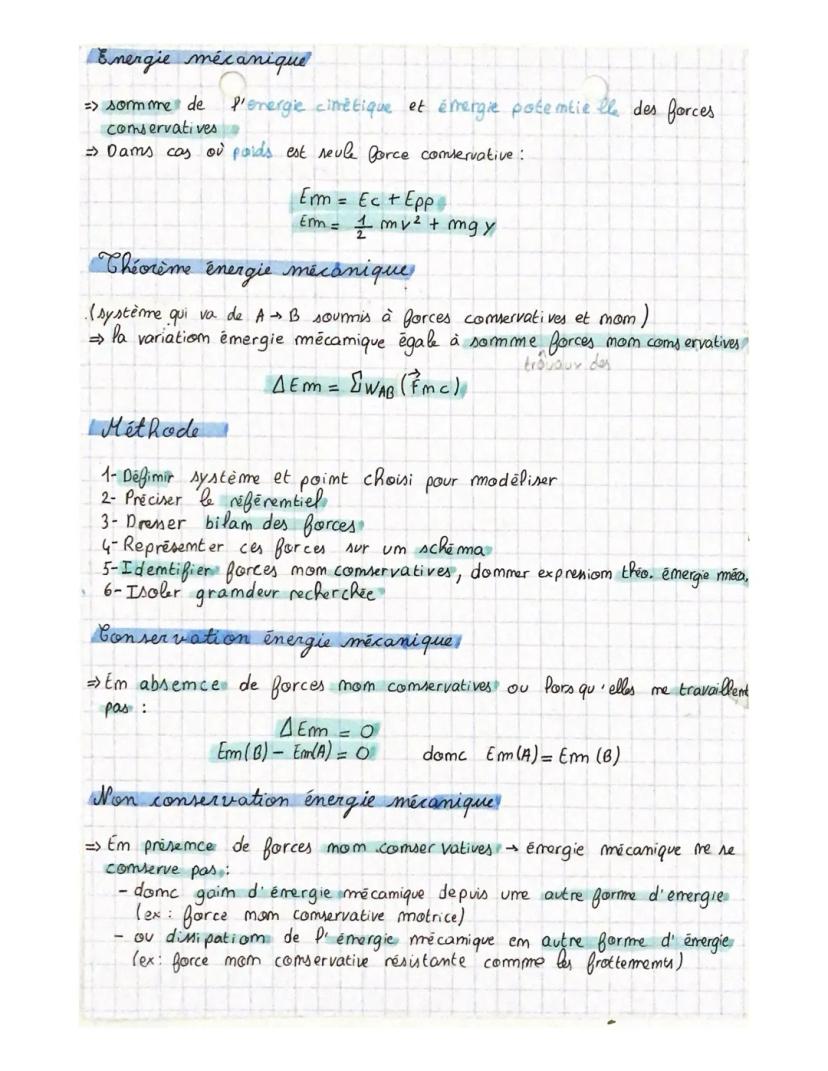 Energie mécanique
=> somme de l'énergie cinétique et énergie potentielle des forces
conservatives
=> Dans cas où poids est seule force conservative :
Em = Ec + Epp
Em = 1/2 mv² + mgy
Théorème énergie mécanique
(système qui va de A → B soumis à forces conservatives et non)
=> la variation énergie mécanique égale à somme forces non conservatives
travaux des
ΔEm = ΣW_AB (F⃗nc)
Méthode
1- Définir système et point choisi pour modéliser
2- Préciser le référentiel
3- Dresser bilan des forces
4- Représenter ces forces sur un schéma
5- Identifier forces non conservatives, donner expression théo. énergie méca.
6- Isoler grandeur recherchée
Conservation énergie mécanique
=> En absence de forces non conservatives ou lorsqu'elles ne travaillent
pas :
ΔEm = 0
Em(B) – Em(A) = 0 donc Em(A) = Em(B)
Non conservation énergie mécanique
=> En présence de forces non conservatives → énergie mécanique ne se
conserve pas :
- donc gain d'énergie mécanique depuis une autre forme d'énergie
(ex : force non conservative motrice)
- ou dissipation de l'énergie mécanique en autre forme d'énergie
(ex : force non conservative résistante comme les frottements)